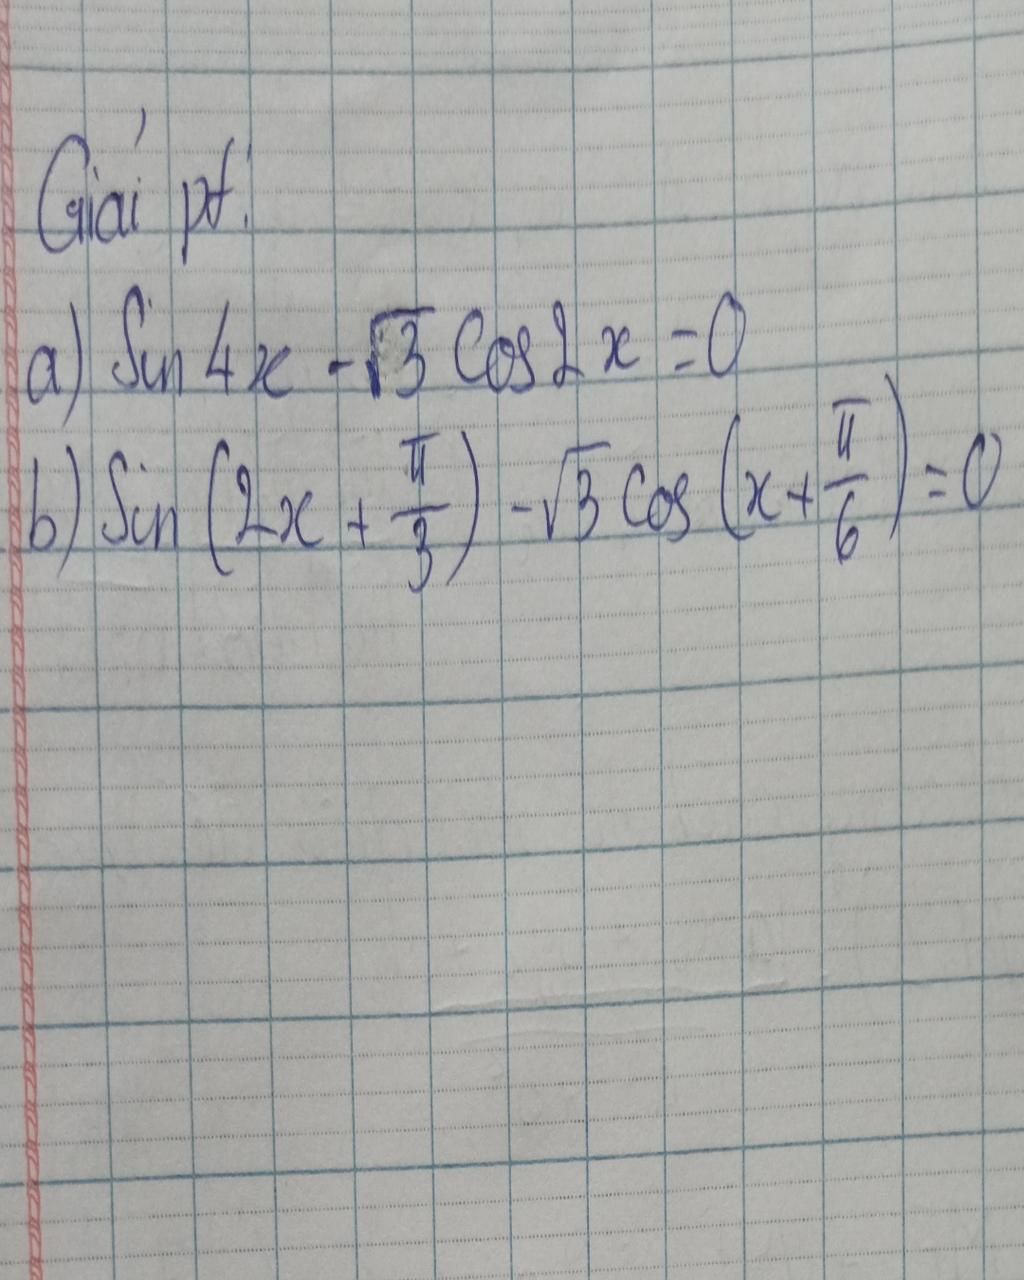 Giải pt:
a) Sin 4x - √3 Cos 2x = 0
b) Sin (2x + π/3) - √3 Cos (x + π/6) = 0